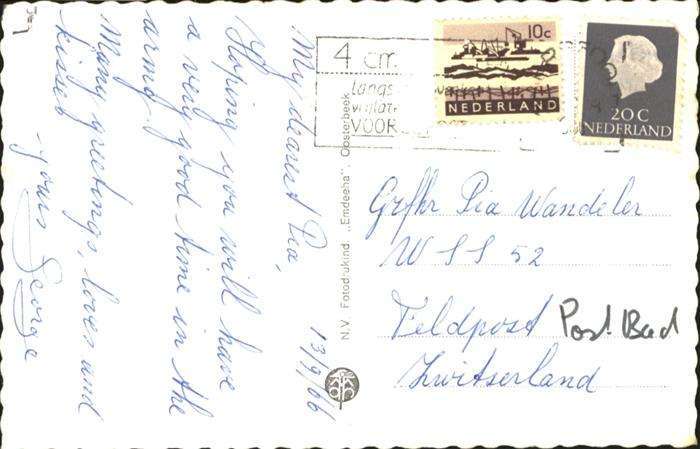 13/9/66
My dearest Pia,
Hoping you will have
a very good time in the
army.
Many greetings, loves and
kisses
- yours George
N.V. Fotodrukind „Emdeeha", Oosterbeek
4 cm.
langs
VOOR
10c
NEDERLAND
20 C
NEDERLAND
Grfhr Pia Wandeler
W S S 52
Feldpost Post Bad
Zwitserland